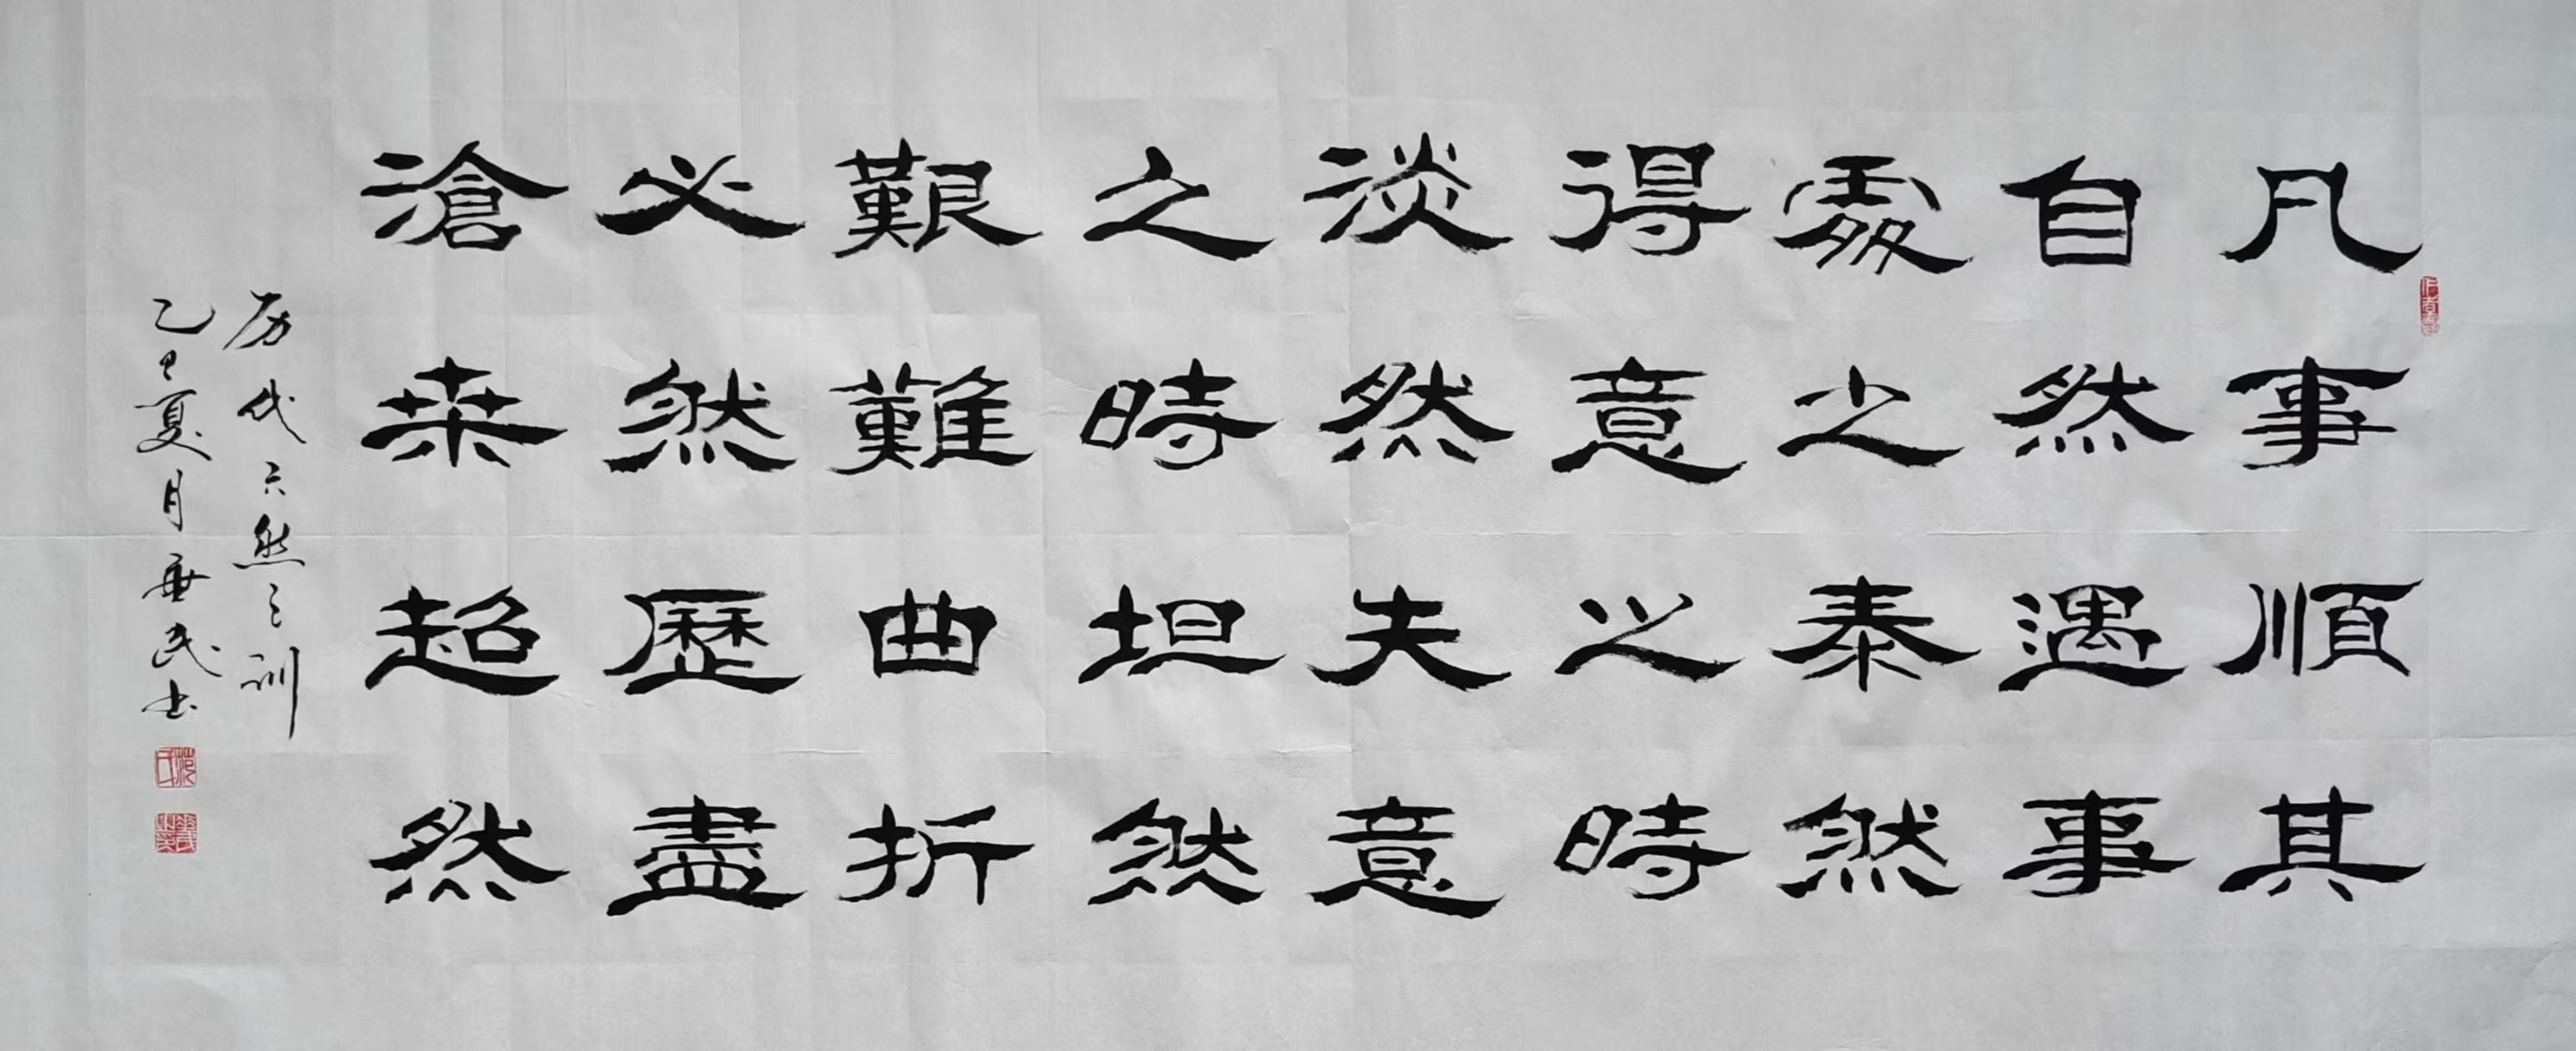 凡事順其
自然遇事
處之泰然
得意之時
淡然失意
之時坦然
艱難曲折
必然歷盡
滄桒超然
历代六然之训
乙巳夏月
民书